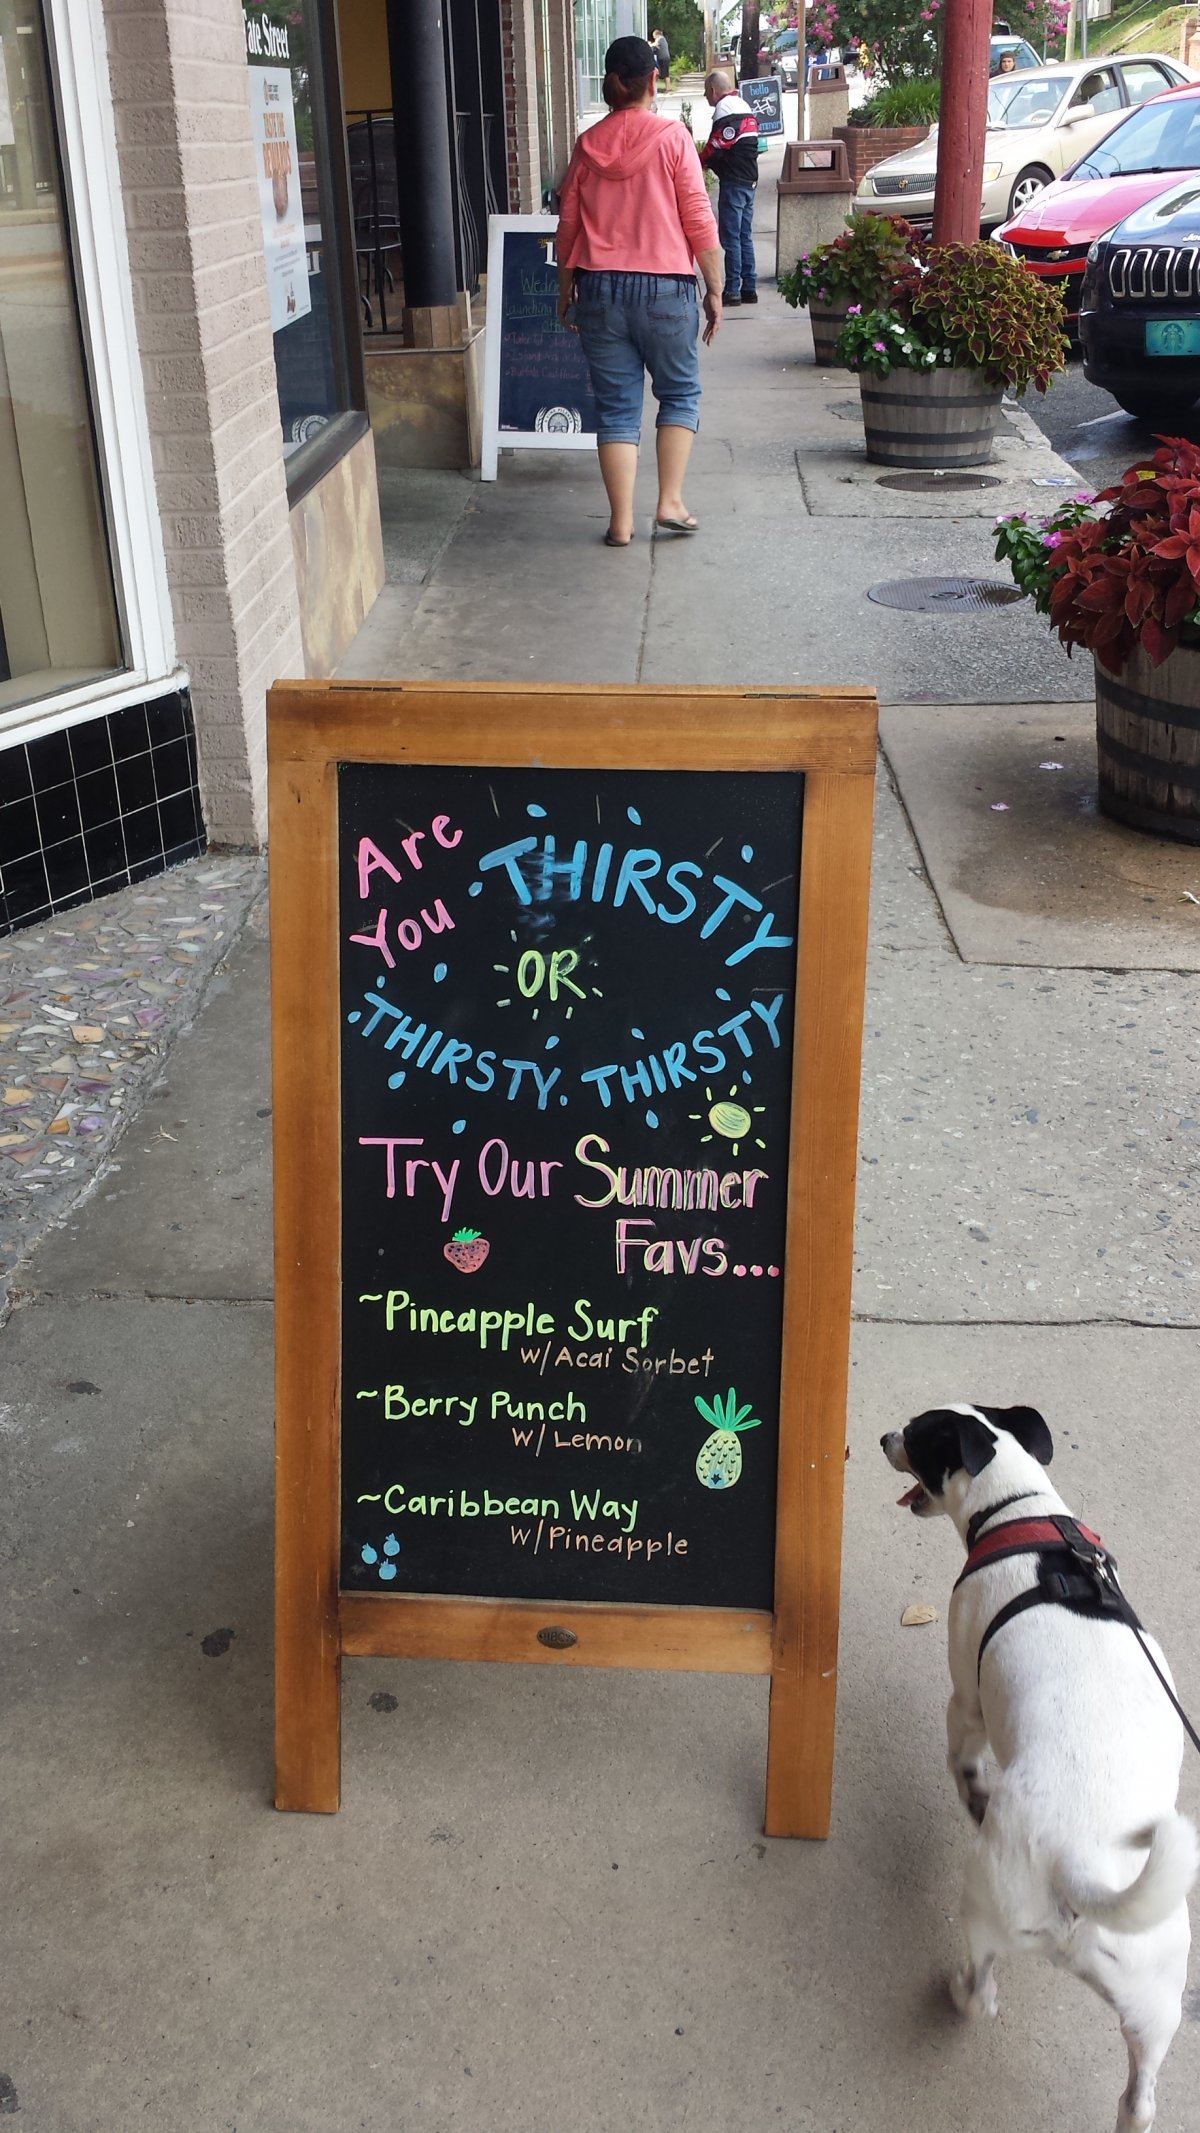 ate Street
TASTE THE
REWARDS
hello
summer
Launching
Are
You
THIRSTY
OR
THIRSTY. THIRSTY
Try Our Summer
Favs...
~Pineapple Surf
w/Acai Sorbet
~Berry Punch
w/Lemon
~Caribbean Way
w/Pineapple